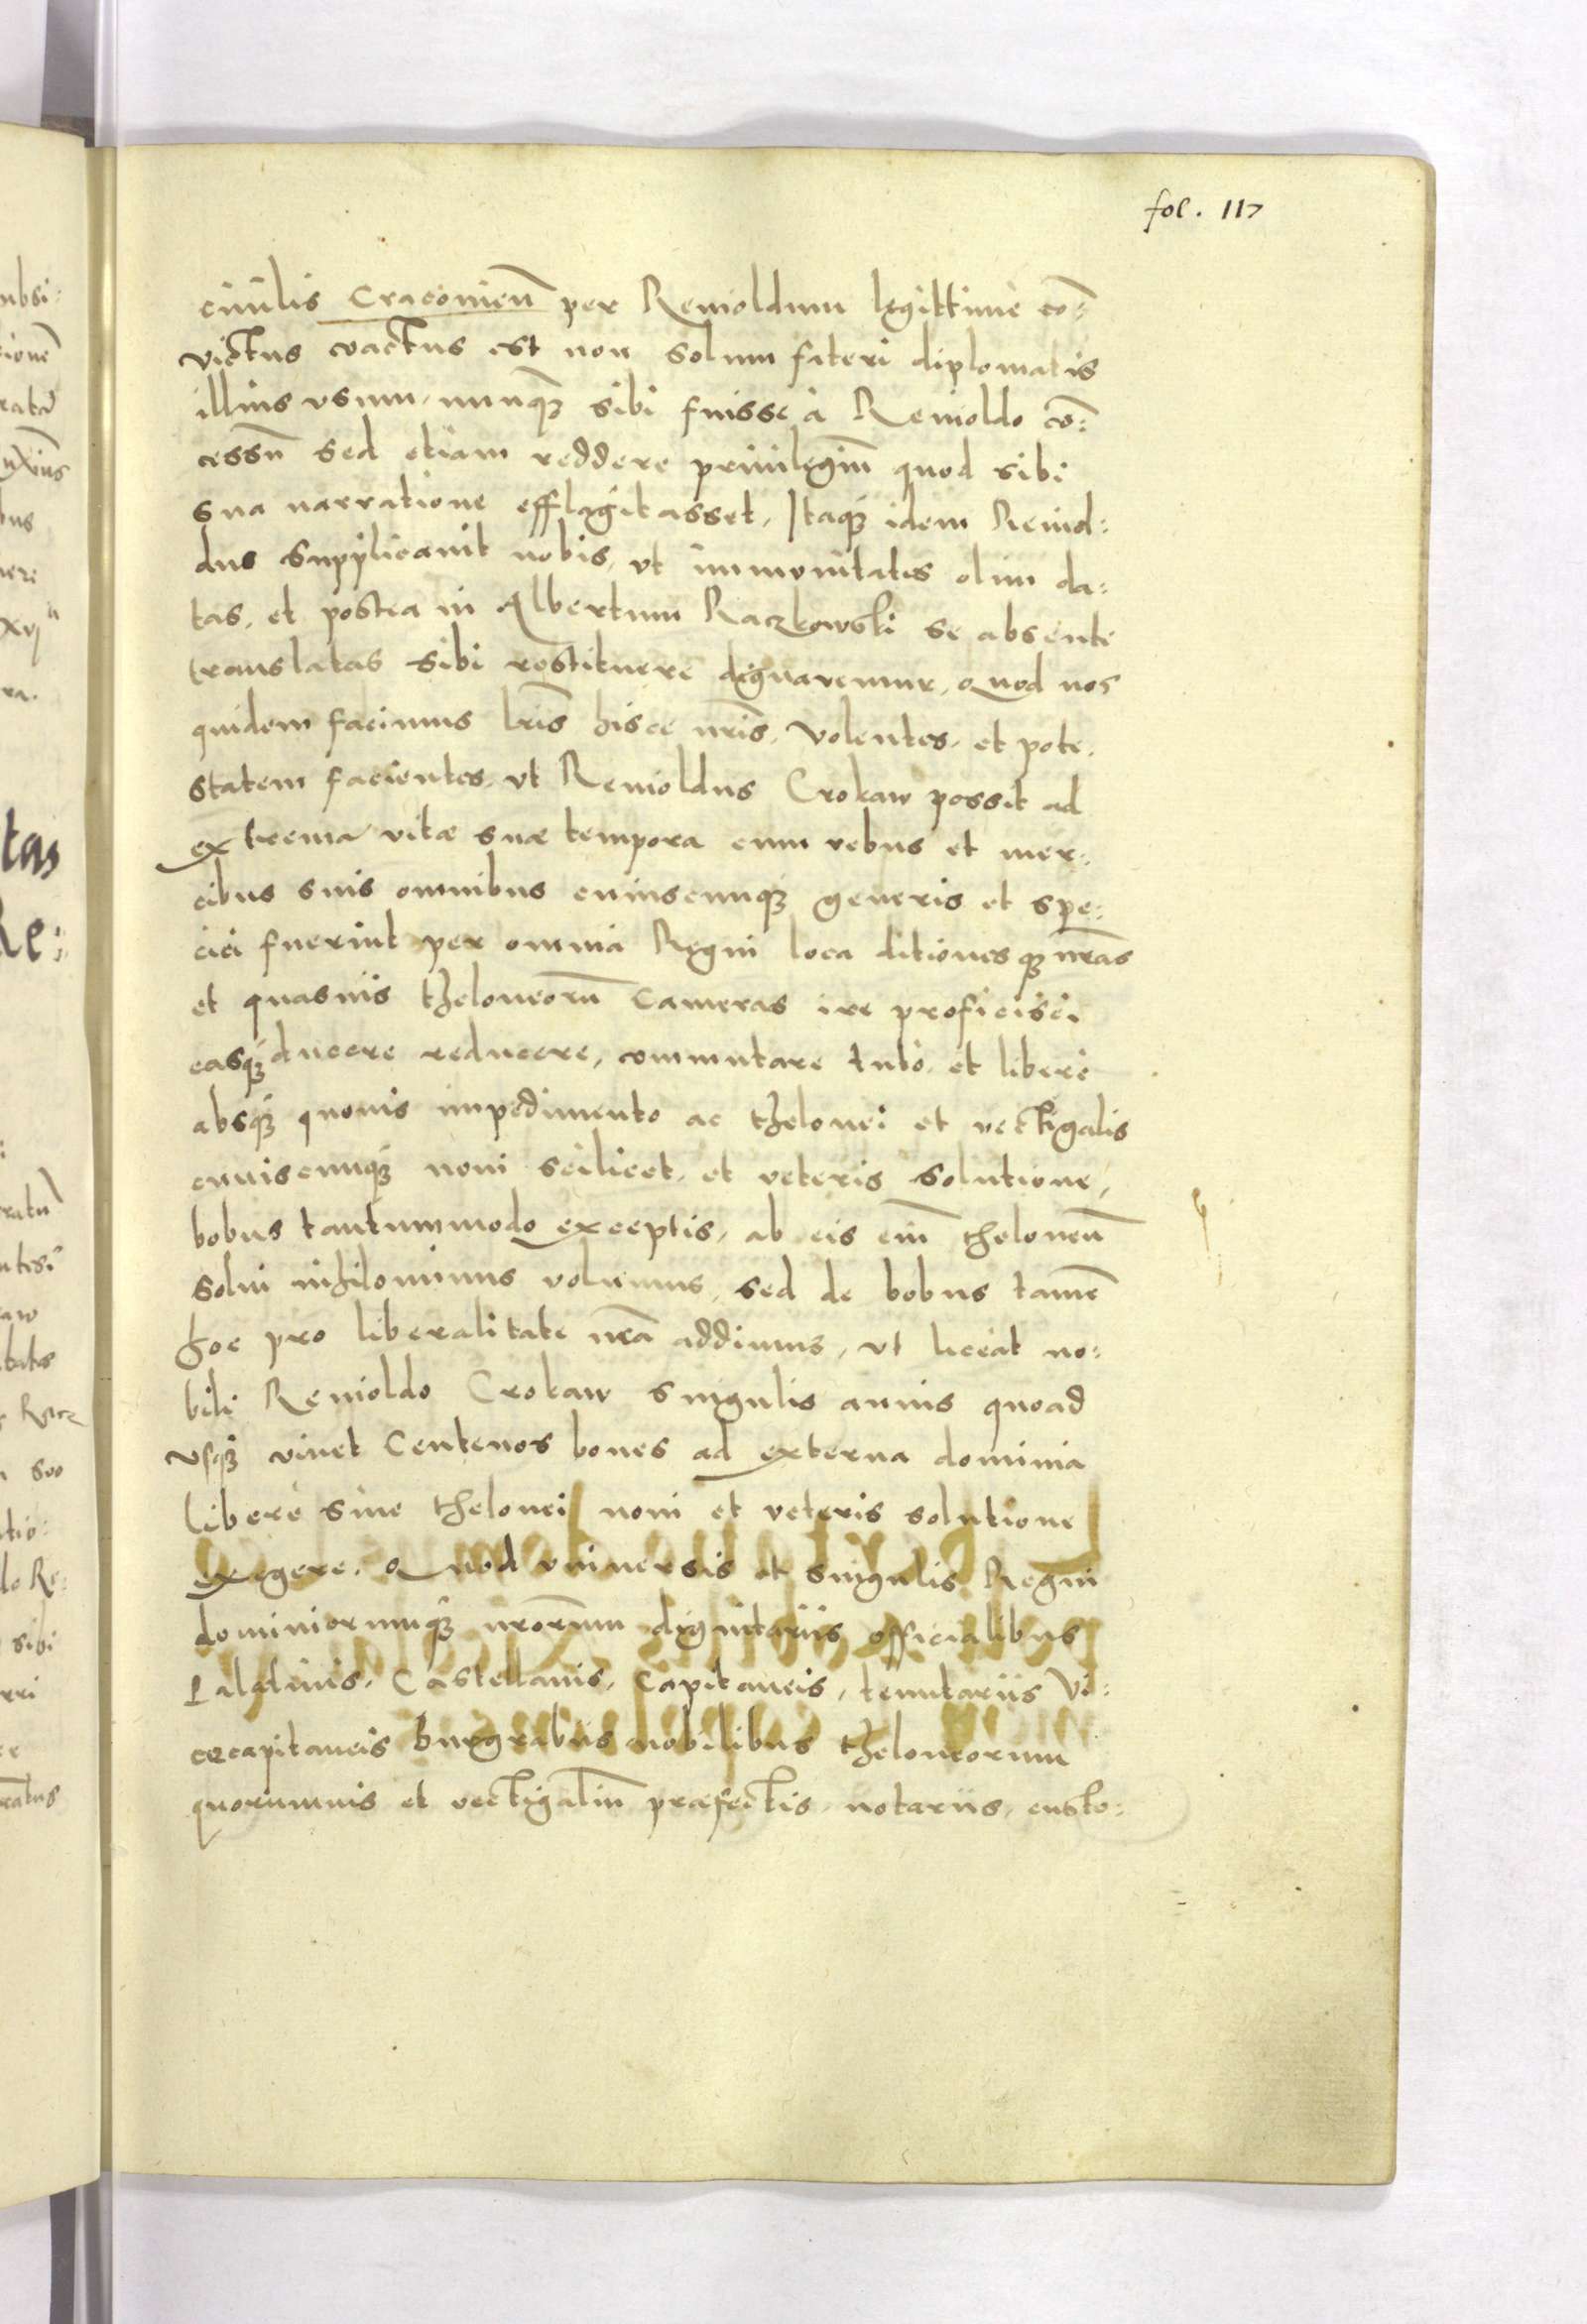 fol. 117
ciuilis Cracouieñ per Reinoldum legittime cõ=
victus coactus est non solum fateri diplomatis
illius vsum, nunq̃ꝫ sibi fuisse à Reinoldo cõ=
cessũ sed etiam reddere priuilegiũ quod sibi
sua narratione efflagitasset, Itaqꝫ idem Reinol=
dus supplicauit nobis, vt immunitates olim da=
tas, et postea in Albertum Raczkowski se absente
translatas sibi restituere dignaremur, Quod nos
quidem facimus lr̃is hisce nr̃is, volentes, et pote=
statem facientes, vt Reinoldus Crokaw possit ad
extrema vitæ suæ tempora cum rebus et mer=
cibus suis omnibus cuiuscunqꝫ generis et spe=
ciei fuerint per omnia Regni loca ditionesqꝫ nr̃as
et quasuis theloneorũ Cameras ire proficisci
easqꝫ ducere reducere, commutare tuto, et libere
absqꝫ quouis impedimento ac thelonei et vectigalis
cuiuscunqꝫ noui scilicet, et veteris solutione,
bobus tantummodo exceptis, ab eis eiñ theloneũ
solui nihilominus volumus, sed de bobus tamẽ
hoc pro liberalitate nr̃a addimus, vt liceat no=
bili Reinoldo Crokaw singulis annis quoad
vsqꝫ viuet Centenos boues ad externa dominia
libere sine thelonei noui et veteris solutione
exegere. Quod vniuersis et singulis Regni
dominiorumqꝫ nror̃um dignitariis officialibus
Palatinis, Castellanis, Capitaneis, tenutariis Vi=
cecapitaneis burgrabiis nobilibus theloneorum
quorumuis et vectigaliũ præfectis, notariis, custo=